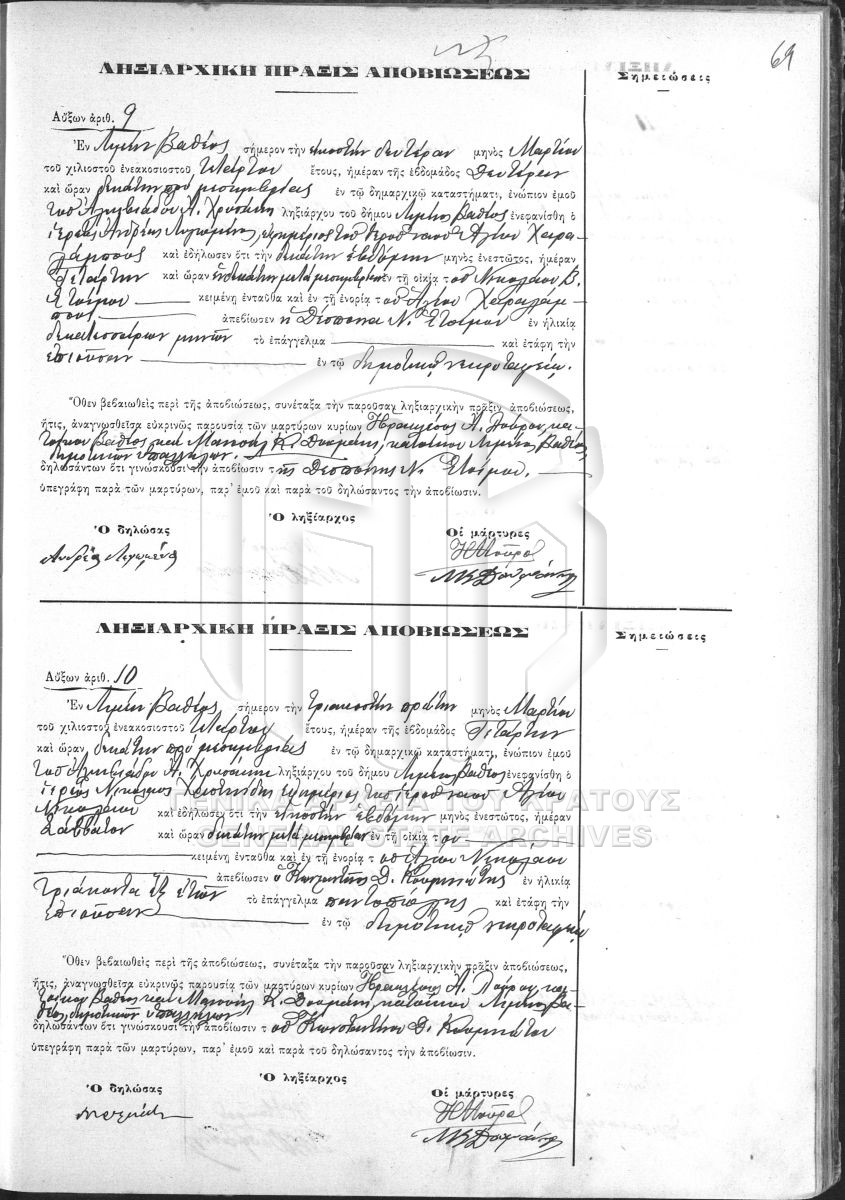 69
ΛΗΞΙΑΡΧΙΚΗ ΠΡΑΞΙΣ ΑΠΟΒΙΩΣΕΩΣ
Σημειώσεις
Αὔξων ἀριθ. 9
Ἐν Λιμένι Βαθέος σήμερον τὴν εἰκοστὴν δευτέραν μηνὸς Μαρτίου
τοῦ χιλιοστοῦ ἐνεακοσιοστοῦ τετάρτου ἔτους, ἡμέραν τῆς ἑβδομάδος Δευτέραν
καὶ ὥραν δεκάτην πρὸ μεσημβρίας ἐν τῷ δημαρχικῷ καταστήματι, ἐνώπιον ἐμοῦ
τοῦ Ἀλκιβιάδου Α. ληξιάρχου τοῦ δήμου Λιμένος Βαθέος ἐνεφανίσθη ὁ
ἱερεὺς Ἀνδρέας ἐφημέριος τοῦ ἱεροῦ ναοῦ Ἁγίου Χαρα-
λάμπους καὶ ἐδήλωσεν ὅτι τὴν δεκάτην ἑβδόμην μηνὸς ἐνεστῶτος, ἡμέραν
Τετάρτην καὶ ὥραν μετὰ μεσημβρίαν ἐν τῇ οἰκίᾳ τοῦ Νικολάου Β.
Ετοίμου κειμένῃ ἐνταῦθα καὶ ἐν τῇ ἐνορίᾳ τοῦ Ἁγίου Χαραλάμ-
πους ἀπεβίωσεν ἡ Δέσποινα Ν. Ετοίμου ἐν ἡλικίᾳ
δεκατεσσάρων μηνῶν τὸ ἐπάγγελμα καὶ ἐτάφη τὴν
ἐπιοῦσαν ἐν τῷ δημοτικῷ νεκροταφείῳ.
Ὅθεν βεβαιωθεὶς περὶ τῆς ἀποβιώσεως, συνέταξα τὴν παροῦσαν ληξιαρχικὴν πρᾶξιν ἀποβιώσεως,
ἥτις, ἀναγνωσθεῖσα εὐκρινῶς παρουσίᾳ τῶν μαρτύρων κυρίων Ἡρακλέους Α. κα-
τοίκου Βαθέος καὶ Μανουὴλ Κ. κατοίκου Λιμένος Βαθέος,
δημοτικῶν ὑπαλλήλων.
δηλωσάντων ὅτι γινώσκουσι τὴν ἀποβίωσιν τῆς Δεσποίνης Ν. Ετοίμου.
ὑπεγράφη παρὰ τῶν μαρτύρων, παρ' ἐμοῦ καὶ παρὰ τοῦ δηλώσαντος τὴν ἀποβίωσιν.
Ὁ δηλώσας
Ὁ ληξίαρχος
Οἱ μάρτυρες
ΛΗΞΙΑΡΧΙΚΗ ΠΡΑΞΙΣ ΑΠΟΒΙΩΣΕΩΣ
Σημειώσεις
Αὔξων ἀριθ. 10
Ἐν Λιμένι Βαθέος σήμερον τὴν τριακοστὴν πρώτην μηνὸς Μαρτίου
τοῦ χιλιοστοῦ ἐνεακοσιοστοῦ τετάρτου ἔτους, ἡμέραν τῆς ἑβδομάδος Τετάρτην
καὶ ὥραν δεκάτην πρὸ μεσημβρίας ἐν τῷ δημαρχικῷ καταστήματι, ἐνώπιον ἐμοῦ
τοῦ Ἀλκιβιάδου Α. ληξιάρχου τοῦ δήμου Λιμένος Βαθέος ἐνεφανίσθη ὁ
ἱερεὺς Νικόλαος ἐφημέριος τοῦ ἱεροῦ ναοῦ Ἁγίου
Νικολάου καὶ ἐδήλωσεν ὅτι τὴν εἰκοστὴν ἑβδόμην μηνὸς ἐνεστῶτος, ἡμέραν
Σάββατον καὶ ὥραν δεκάτην μετὰ μεσημβρίαν ἐν τῇ οἰκίᾳ του
κειμένῃ ἐνταῦθα καὶ ἐν τῇ ἐνορίᾳ τοῦ Ἁγίου Νικολάου
ἀπεβίωσεν ὁ Κωνσταντῖνος Δ. ἐν ἡλικίᾳ
τριάκοντα ἓξ ἐτῶν τὸ ἐπάγγελμα παντοπώλης καὶ ἐτάφη τὴν
ἐπιοῦσαν ἐν τῷ δημοτικῷ νεκροταφείῳ
Ὅθεν βεβαιωθεὶς περὶ τῆς ἀποβιώσεως, συνέταξα τὴν παροῦσαν ληξιαρχικὴν πρᾶξιν ἀποβιώσεως,
ἥτις, ἀναγνωσθεῖσα εὐκρινῶς παρουσίᾳ τῶν μαρτύρων κυρίων Ἡρακλέους Α. κα-
τοίκου Βαθέος καὶ Μανουὴλ Κ. κατοίκου Λιμένος Βα-
θέος, δημοτικῶν ὑπαλλήλων
δηλωσάντων ὅτι γινώσκουσι τὴν ἀποβίωσιν τοῦ Κωνσταντίνου Δ.
ὑπεγράφη παρὰ τῶν μαρτύρων, παρ' ἐμοῦ καὶ παρὰ τοῦ δηλώσαντος τὴν ἀποβίωσιν.
Ὁ δηλώσας
Ὁ ληξίαρχος
Οἱ μάρτυρες
ΓΕΝΙΚΑ ΑΡΧΕΙΑ ΤΟΥ ΚΡΑΤΟΥΣ
GENERAL STATE ARCHIVES